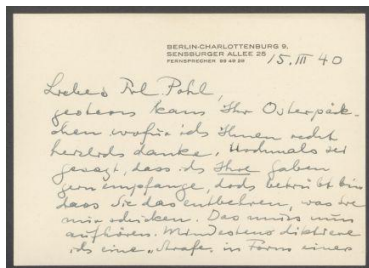 BERLIN-CHARLOTTENBURG 9,
SENSBURGER ALLEE 25
FERNSPRECHER 99 49 29
15. III 40
Liebes Frl Pohl,
gestern kam Ihr Osterpäk-
chen wofür ich Ihnen recht
herzlich danke. Nochmals sei
gesagt, dass ich Ihre Gaben
gern empfange, doch betrübt bin
dass Sie das entbehren, was Sie
mir schicken. Das muss nun
aufhören. Mindestens diktiere
ich eine „Strafe" in Form einer